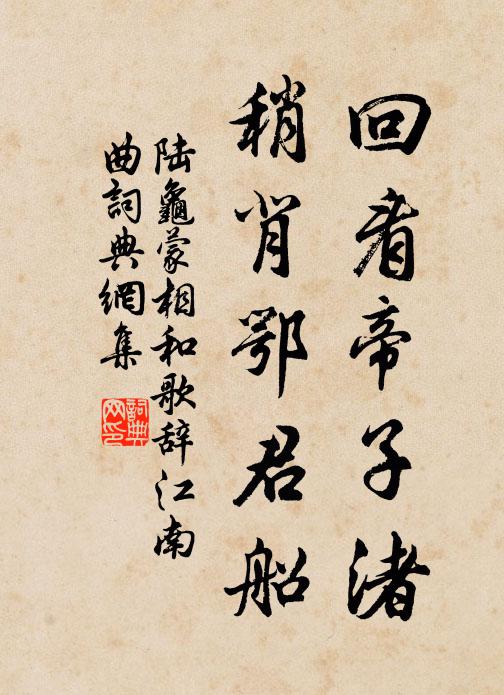 回看帝子渚
稍背鄂君船
陆龜蒙相和歌辞江南
曲詞典網集
詞典
网印